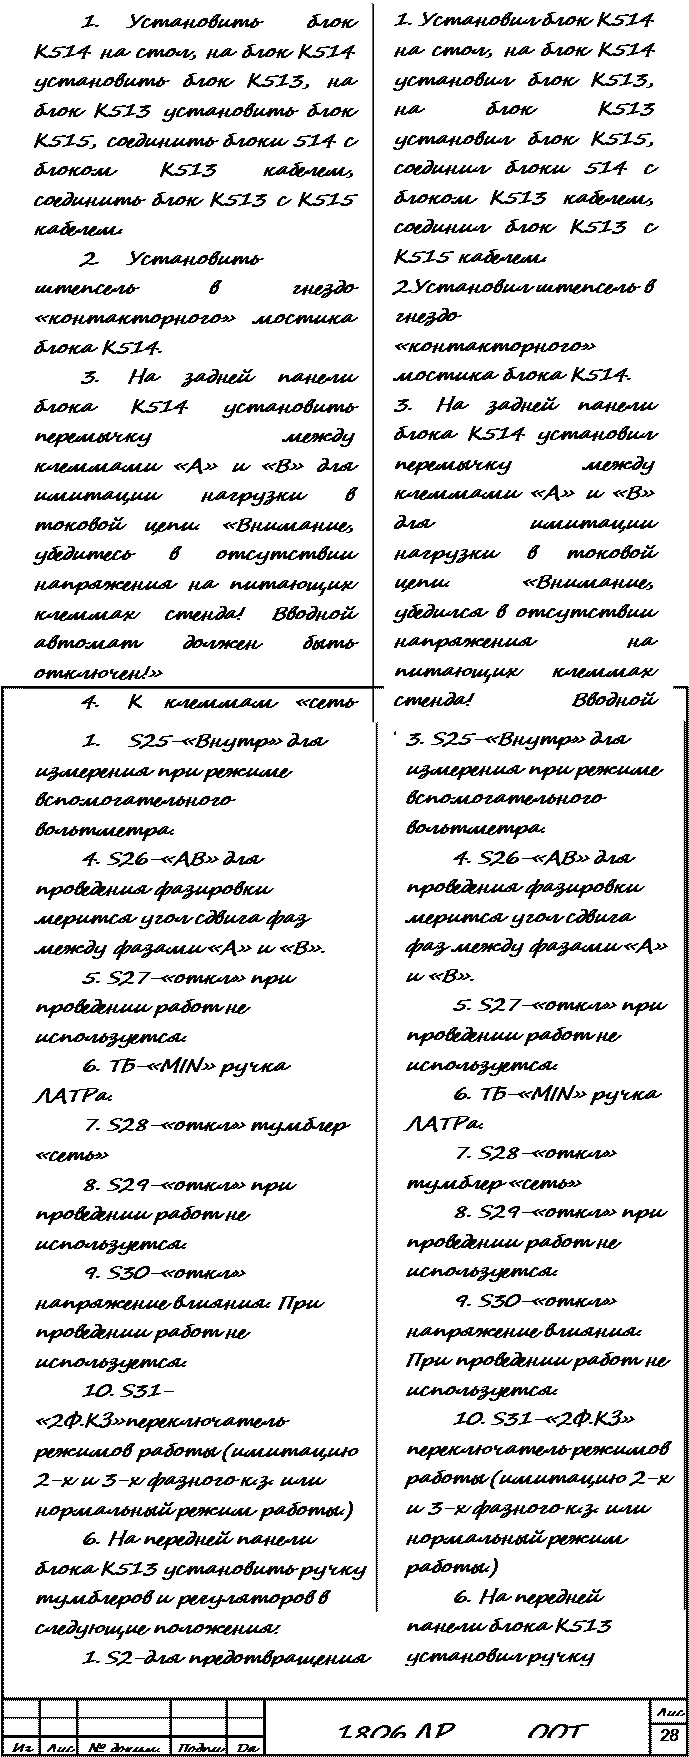 1. Установить блок
К514 на стол, на блок К514
установить блок К513, на
блок К513 установить блок
К515, соединить блоки 514 с
блоком К513 кабелем,
соединить блок К513 с К515
кабелем.
2. Установить
штепсель в гнездо
«контакторного» мостика
блока К514.
3. На задней панели
блока К514 установить
перемычку между
клеммами «А» и «В» для
имитации нагрузки в
токовой цепи. «Внимание,
убедитесь в отсутствии
напряжения на питающих
клеммах стенда! Вводной
автомат должен быть
отключен!»
4. К клеммам «сеть
1. Установил блок К514
на стол, на блок К514
установил блок К513,
на блок К513
установил блок К515,
соединил блоки 514 с
блоком К513 кабелем,
соединил блок К513 с
К515 кабелем.
2.Установил штепсель в
гнездо
«контакторного»
мостика блока К514.
3. На задней панели
блока К514 установил
перемычку между
клеммами «А» и «В»
для имитации
нагрузки в токовой
цепи. «Внимание,
убедился в отсутствии
напряжения на
питающих клеммах
стенда! Вводной
1. S25-«Внутр» для
измерения при режиме
вспомогательного
вольтметра.
4. S26-«АВ» для
проведения фазировки
мерится угол сдвига фаз
между фазами «А» и «В».
5. S27-«откл» при
проведении работ не
используется.
6. ТБ-«MIN» ручка
ЛАТРа.
7. S28-«откл» тумблер
«сеть»
8. S29-«откл» при
проведении работ не
используется.
9. S30-«откл»
напряжение влияния. При
проведении работ не
используется.
10. S31-
«2Ф.КЗ»переключатель
режимов работы (имитацию
2-х и 3-х фазного к.з. или
нормальный режим работы.)
6. На передней панели
блока К513 установить ручку
тумблеров и регуляторов в
следующие положения:
1. S2-для предотвращения
3. S25-«Внутр» для
измерения при режиме
вспомогательного
вольтметра.
4. S26-«АВ» для
проведения фазировки
мерится угол сдвига
фаз между фазами «А»
и «В».
5. S27-«откл» при
проведении работ не
используется.
6. ТБ-«MIN» ручка
ЛАТРа.
7. S28-«откл»
тумблер «сеть»
8. S29-«откл» при
проведении работ не
используется.
9. S30-«откл»
напряжение влияния.
При проведении работ не
используется.
10. S31-«2Ф.КЗ»
переключатель режимов
работы (имитацию 2-х
и 3-х фазного к.з. или
нормальный режим
работы.)
6. На передней
панели блока К513
установил ручку
Лис
28
Из Лис № докум. Подпи Да